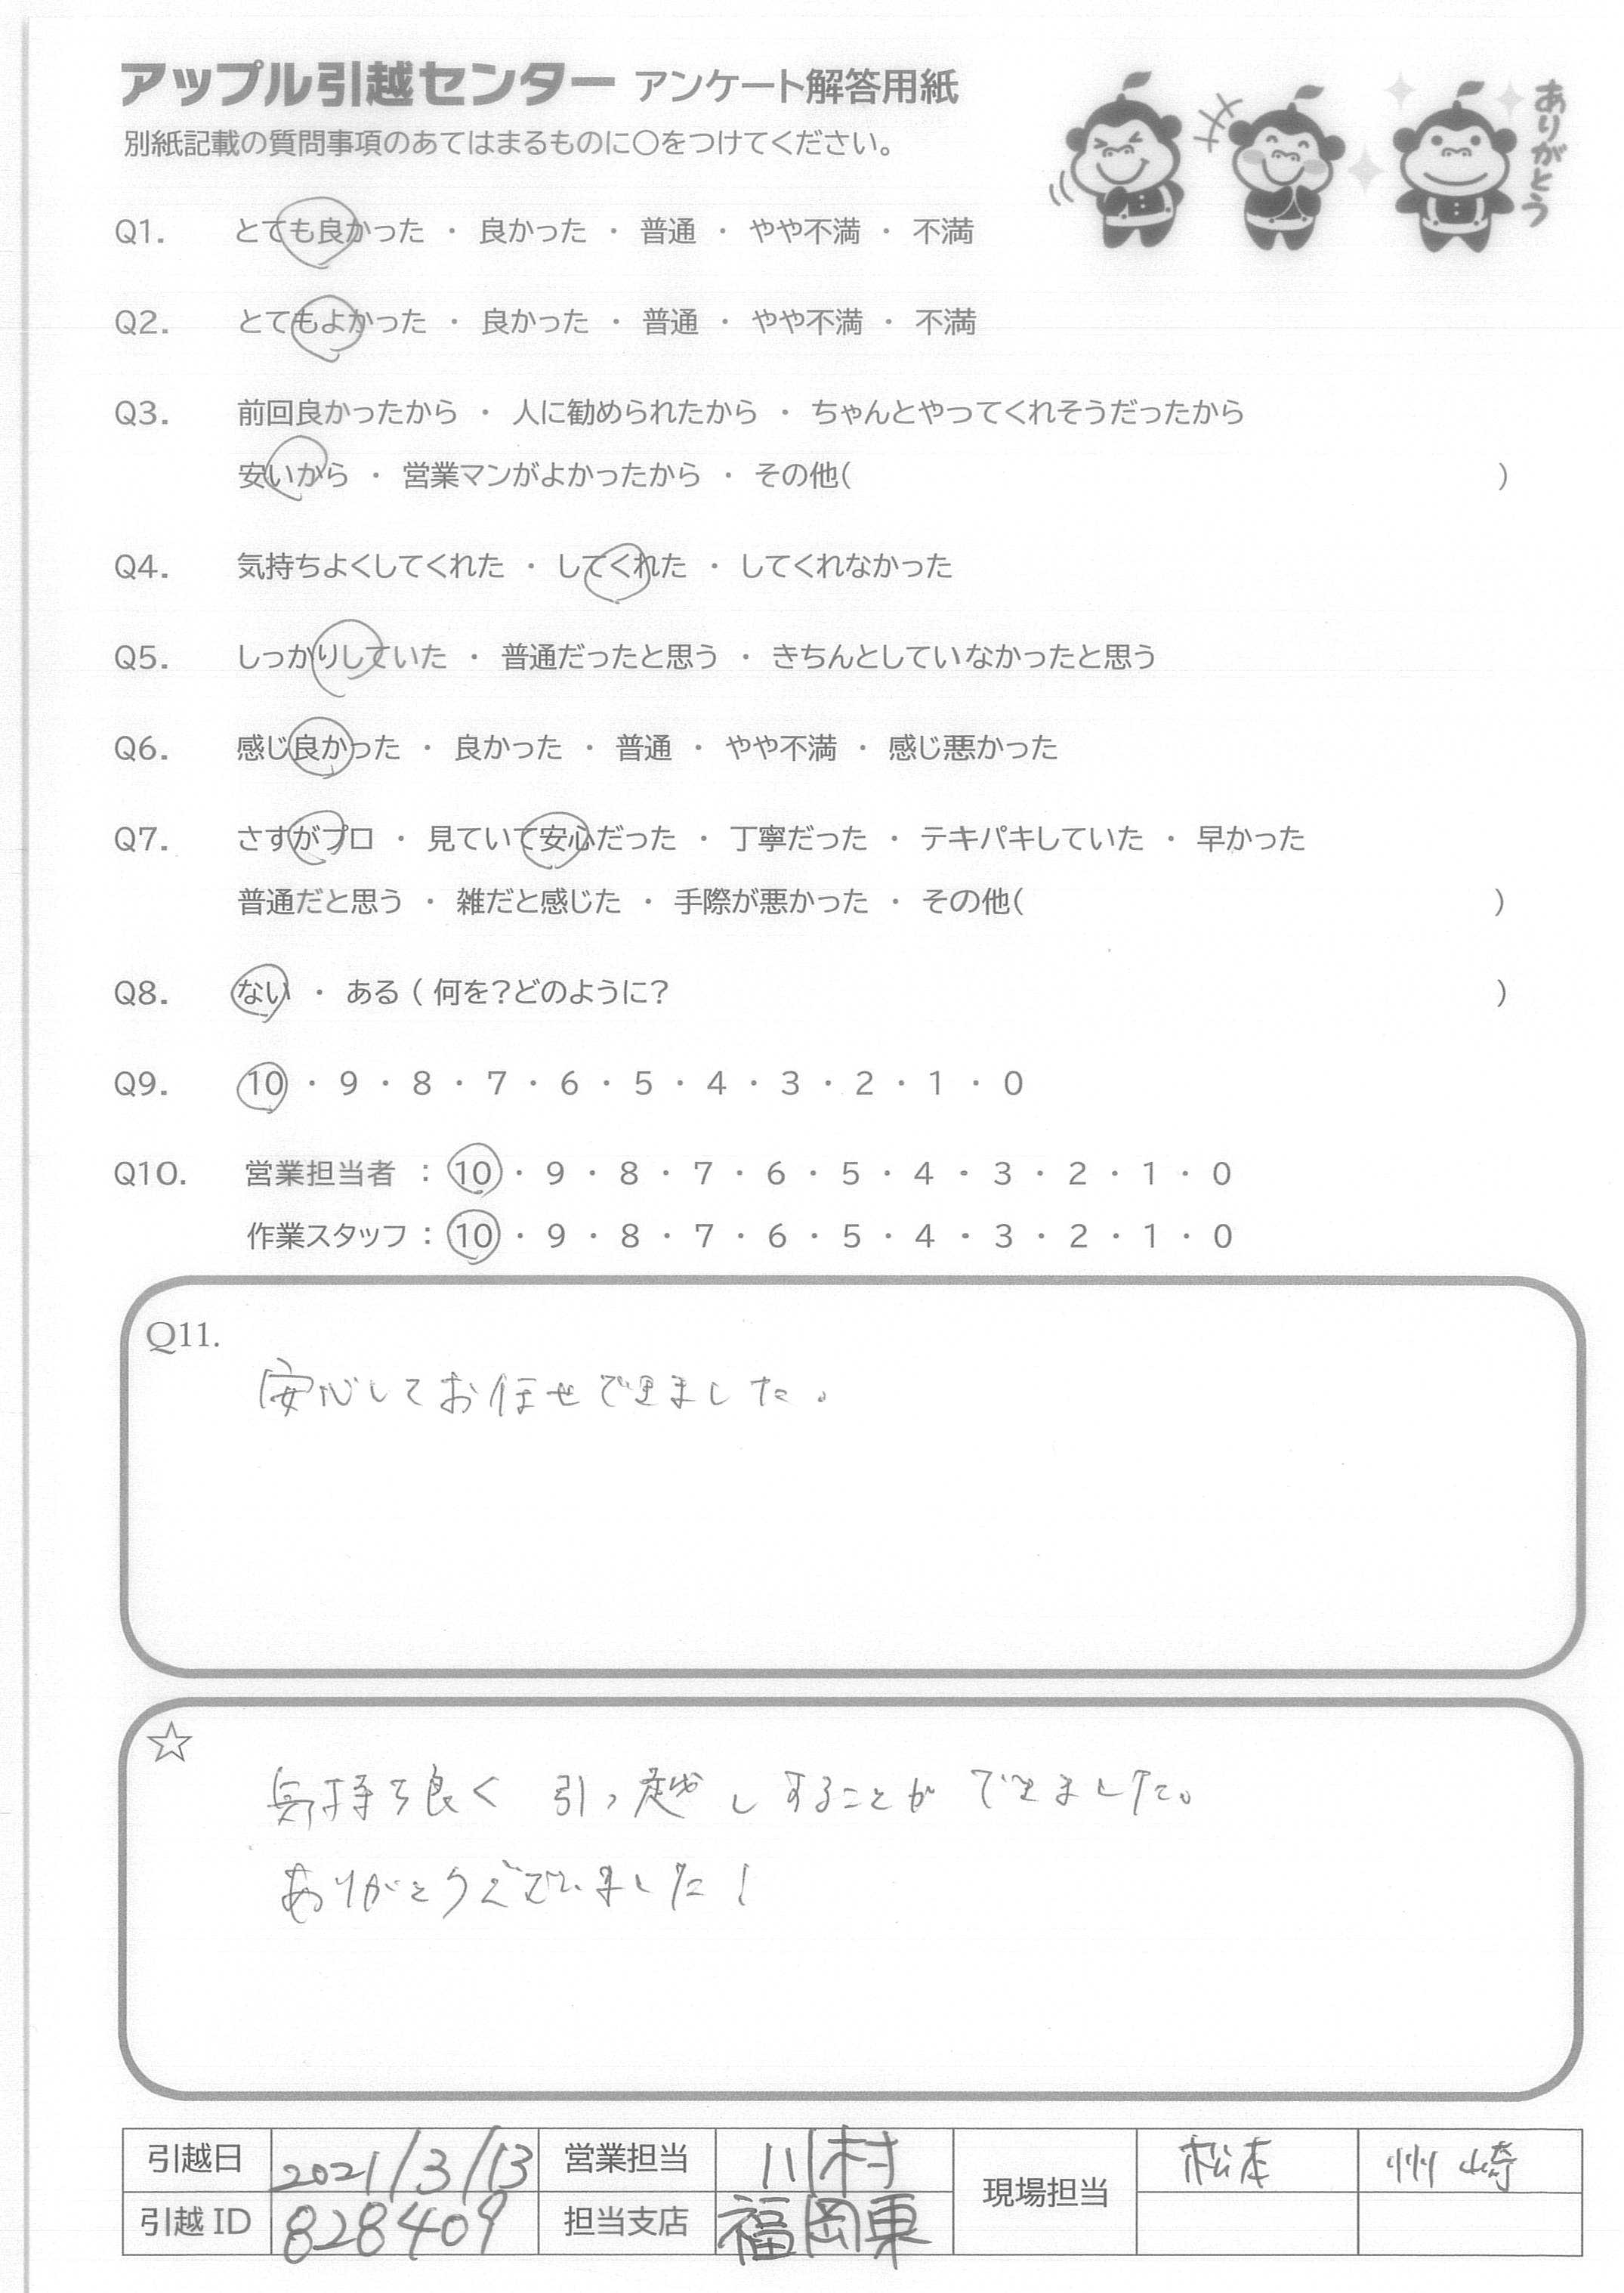 アップル引越センター アンケート解答用紙
別紙記載の質問事項のあてはまるものに○をつけてください。
ありがとう
Q1. とても良かった ・ 良かった ・ 普通 ・ やや不満 ・ 不満
Q2. とてもよかった ・ 良かった ・ 普通 ・ やや不満 ・ 不満
Q3. 前回良かったから ・ 人に勧められたから ・ ちゃんとやってくれそうだったから
安いから ・ 営業マンがよかったから ・ その他( )
Q4. 気持ちよくしてくれた ・ してくれた ・ してくれなかった
Q5. しっかりしていた ・ 普通だったと思う ・ きちんとしていなかったと思う
Q6. 感じ良かった ・ 良かった ・ 普通 ・ やや不満 ・ 感じ悪かった
Q7. さすがプロ ・ 見ていて安心だった ・ 丁寧だった ・ テキパキしていた ・ 早かった
普通だと思う ・ 雑だと感じた ・ 手際が悪かった ・ その他( )
Q8. ない ・ ある ( 何を?どのように? )
Q9. 10 ・ 9 ・ 8 ・ 7 ・ 6 ・ 5 ・ 4 ・ 3 ・ 2 ・ 1 ・ 0
Q10. 営業担当者 : 10 ・ 9 ・ 8 ・ 7 ・ 6 ・ 5 ・ 4 ・ 3 ・ 2 ・ 1 ・ 0
作業スタッフ : 10 ・ 9 ・ 8 ・ 7 ・ 6 ・ 5 ・ 4 ・ 3 ・ 2 ・ 1 ・ 0
Q11.
安心してお任せできました。
☆
気持ち良く 引っ越しすることができました。
ありがとうございました!
引越日 2021/3/13 営業担当 川村 現場担当 松本 州崎
引越ID 828409 担当支店 福岡東